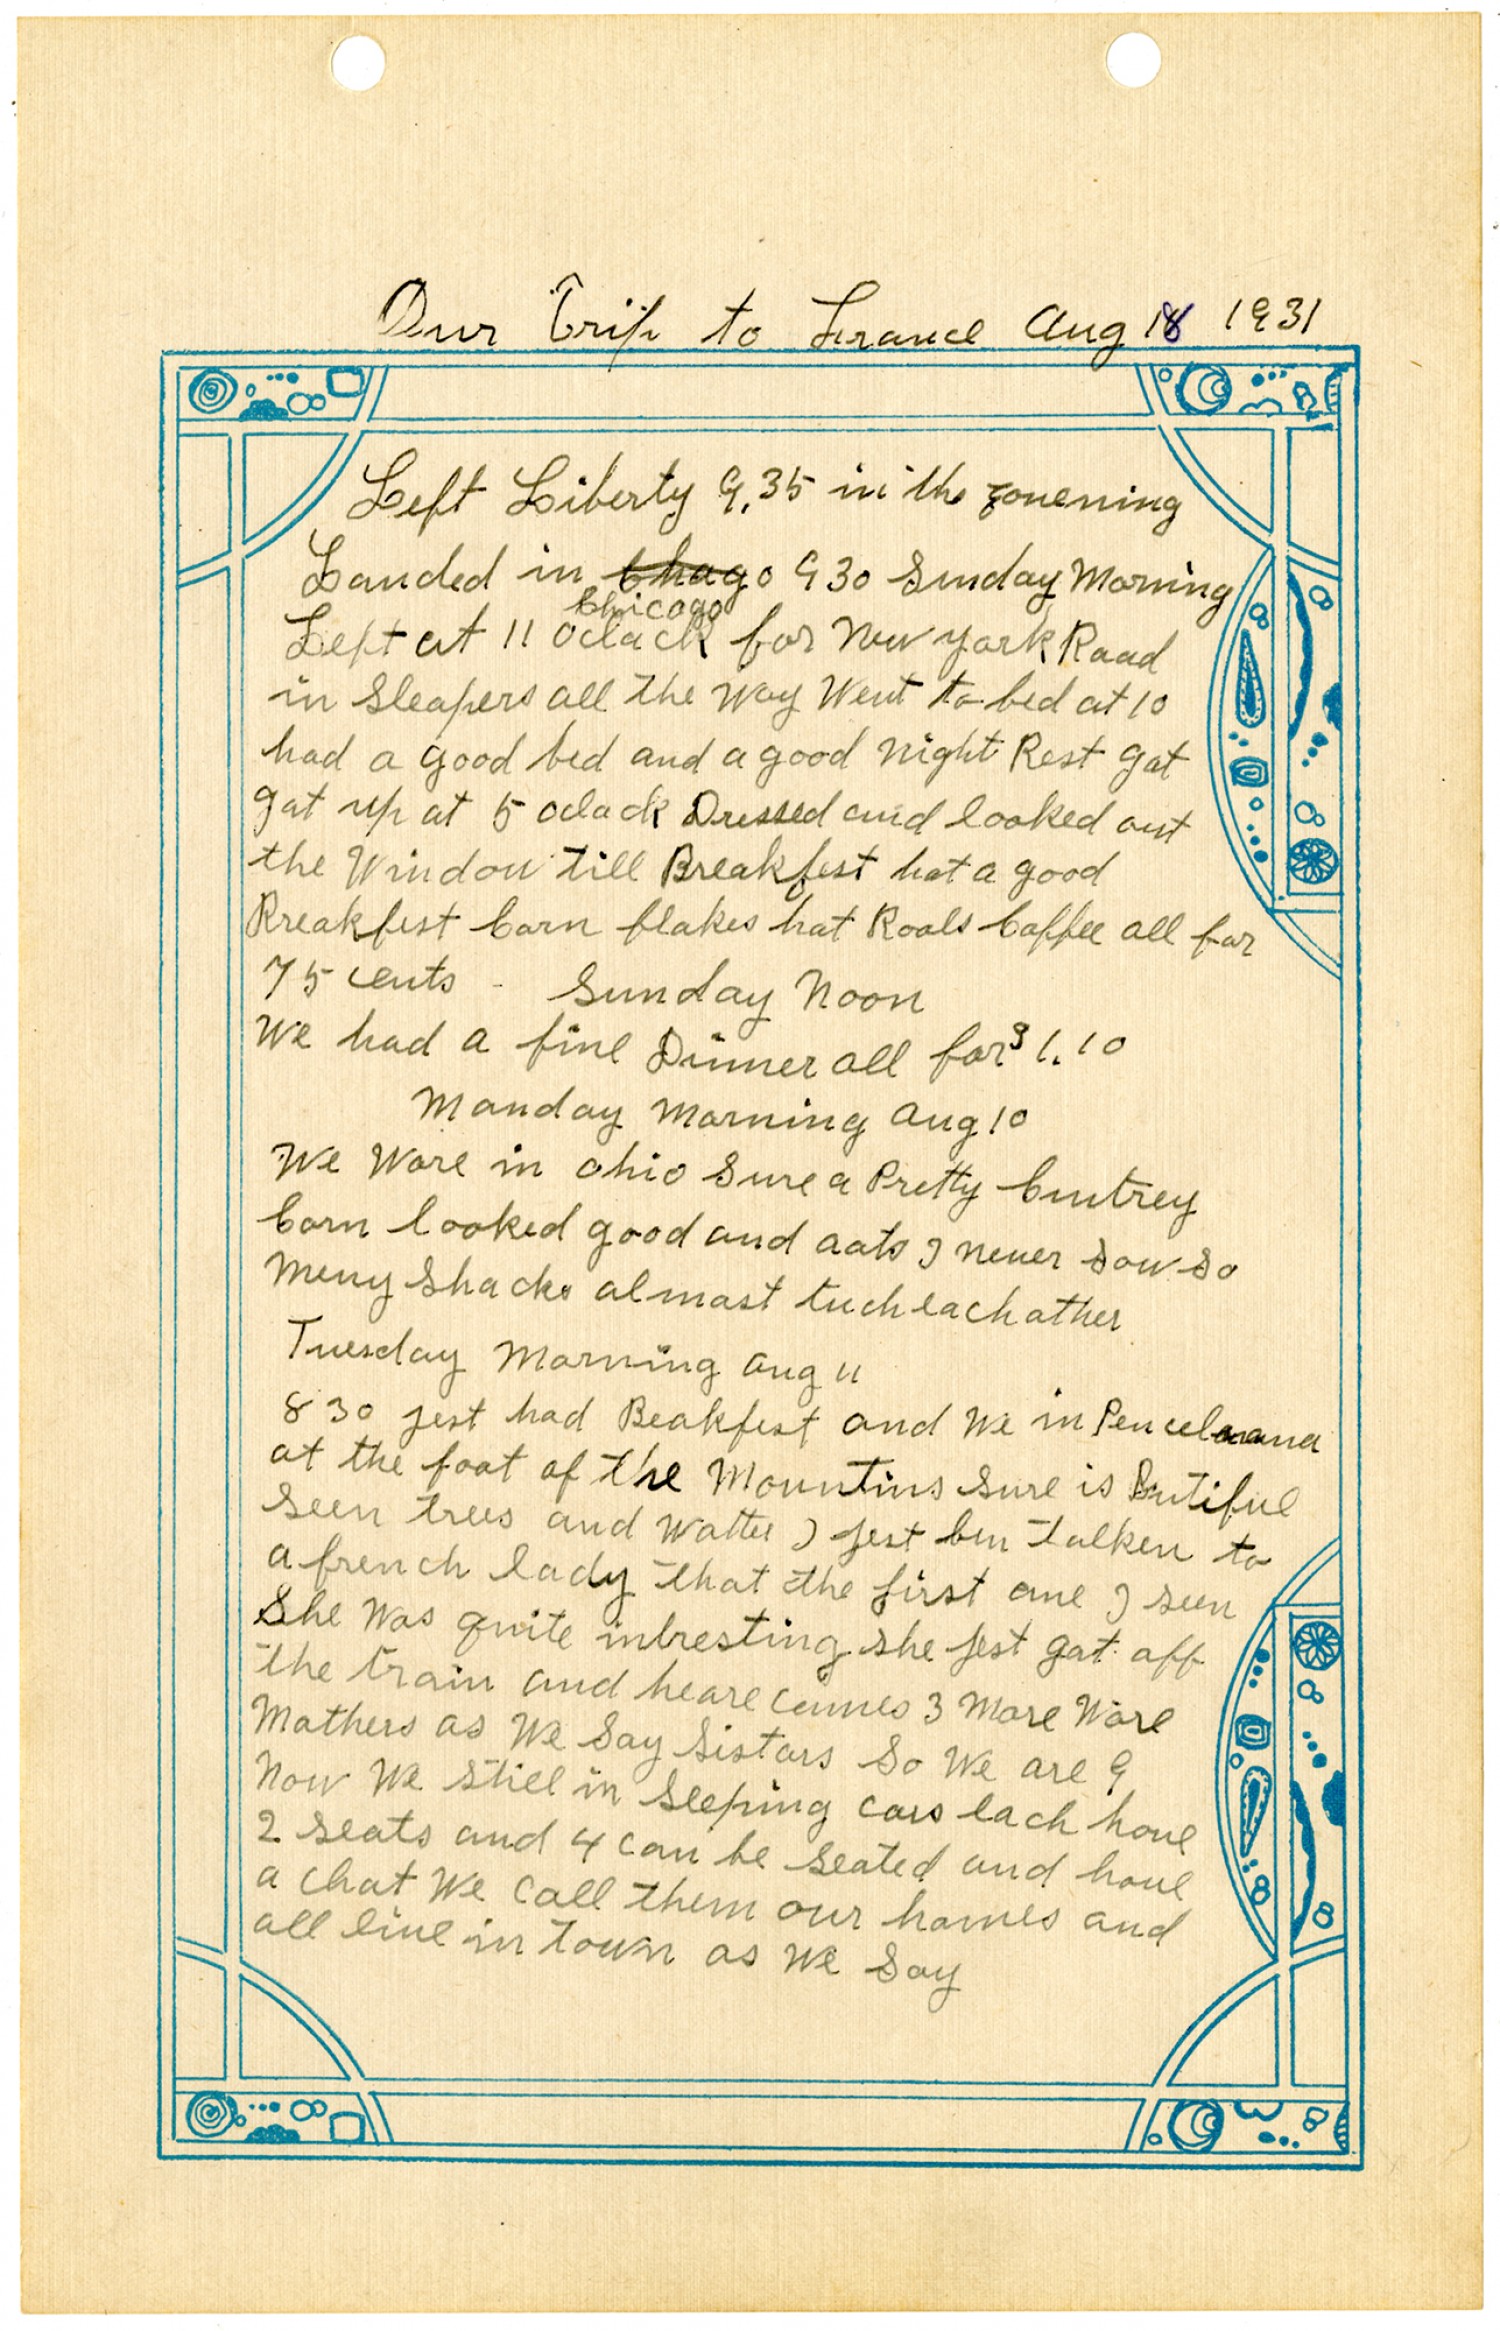 Our Trip to France Aug 18 1931
Left Liberty 9.35 in the
Landed in Chago 9 30 Sunday Morning
Chicago
Left at 11 oclack for New york Road
in Sleapers all the Way Went to bed at 10
had a good bed and a good night Rest gat
gat up at 5 oclack Dressed and looked out
the Window till Breakfest hat a good
Breakfest Corn flakes hat Roals Coffee all for
75 cents - Sunday Noon
We had a fine Dinner all for $1.10
Monday Morning Aug 10
We Ware in Ohio Sure a Pretty Cuntrey
Corn looked good and oats I never sow so
Meny Shacks almast tuch each ather
Tuesday Morning Aug 11
8 30 jest had Beakfest and We in
at the foot of the Mountins Sure is Butiful
Seen trees and Watter I jest ben talken to
a french lady that the first one I seen
She Was quite intresting she jest gat off
the train and heare comes 3 More Ware
Mothers as We Say Sistars So We are 9
Now We Still in Sleeping cars each have
2 Seats and 4 can be Seated and have
a chat We call them our homes and
all live in town as We Say